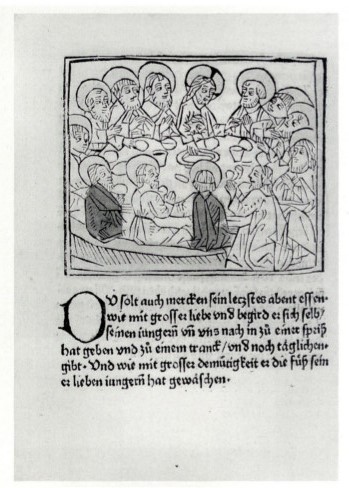 DU solt auch mercken sein leczstes abent essen·
wie mit grosser liebe vnd begird er sich selb/
seinen iungern̄ vn̄ vns nach in zů einer speiß
hat geben vnd zů einem tranck/vnd noch täglichen·
gibt· Und wie mit grosser demütigkeit er die füß sein
er lieben iungern̄ hat gewäschen·